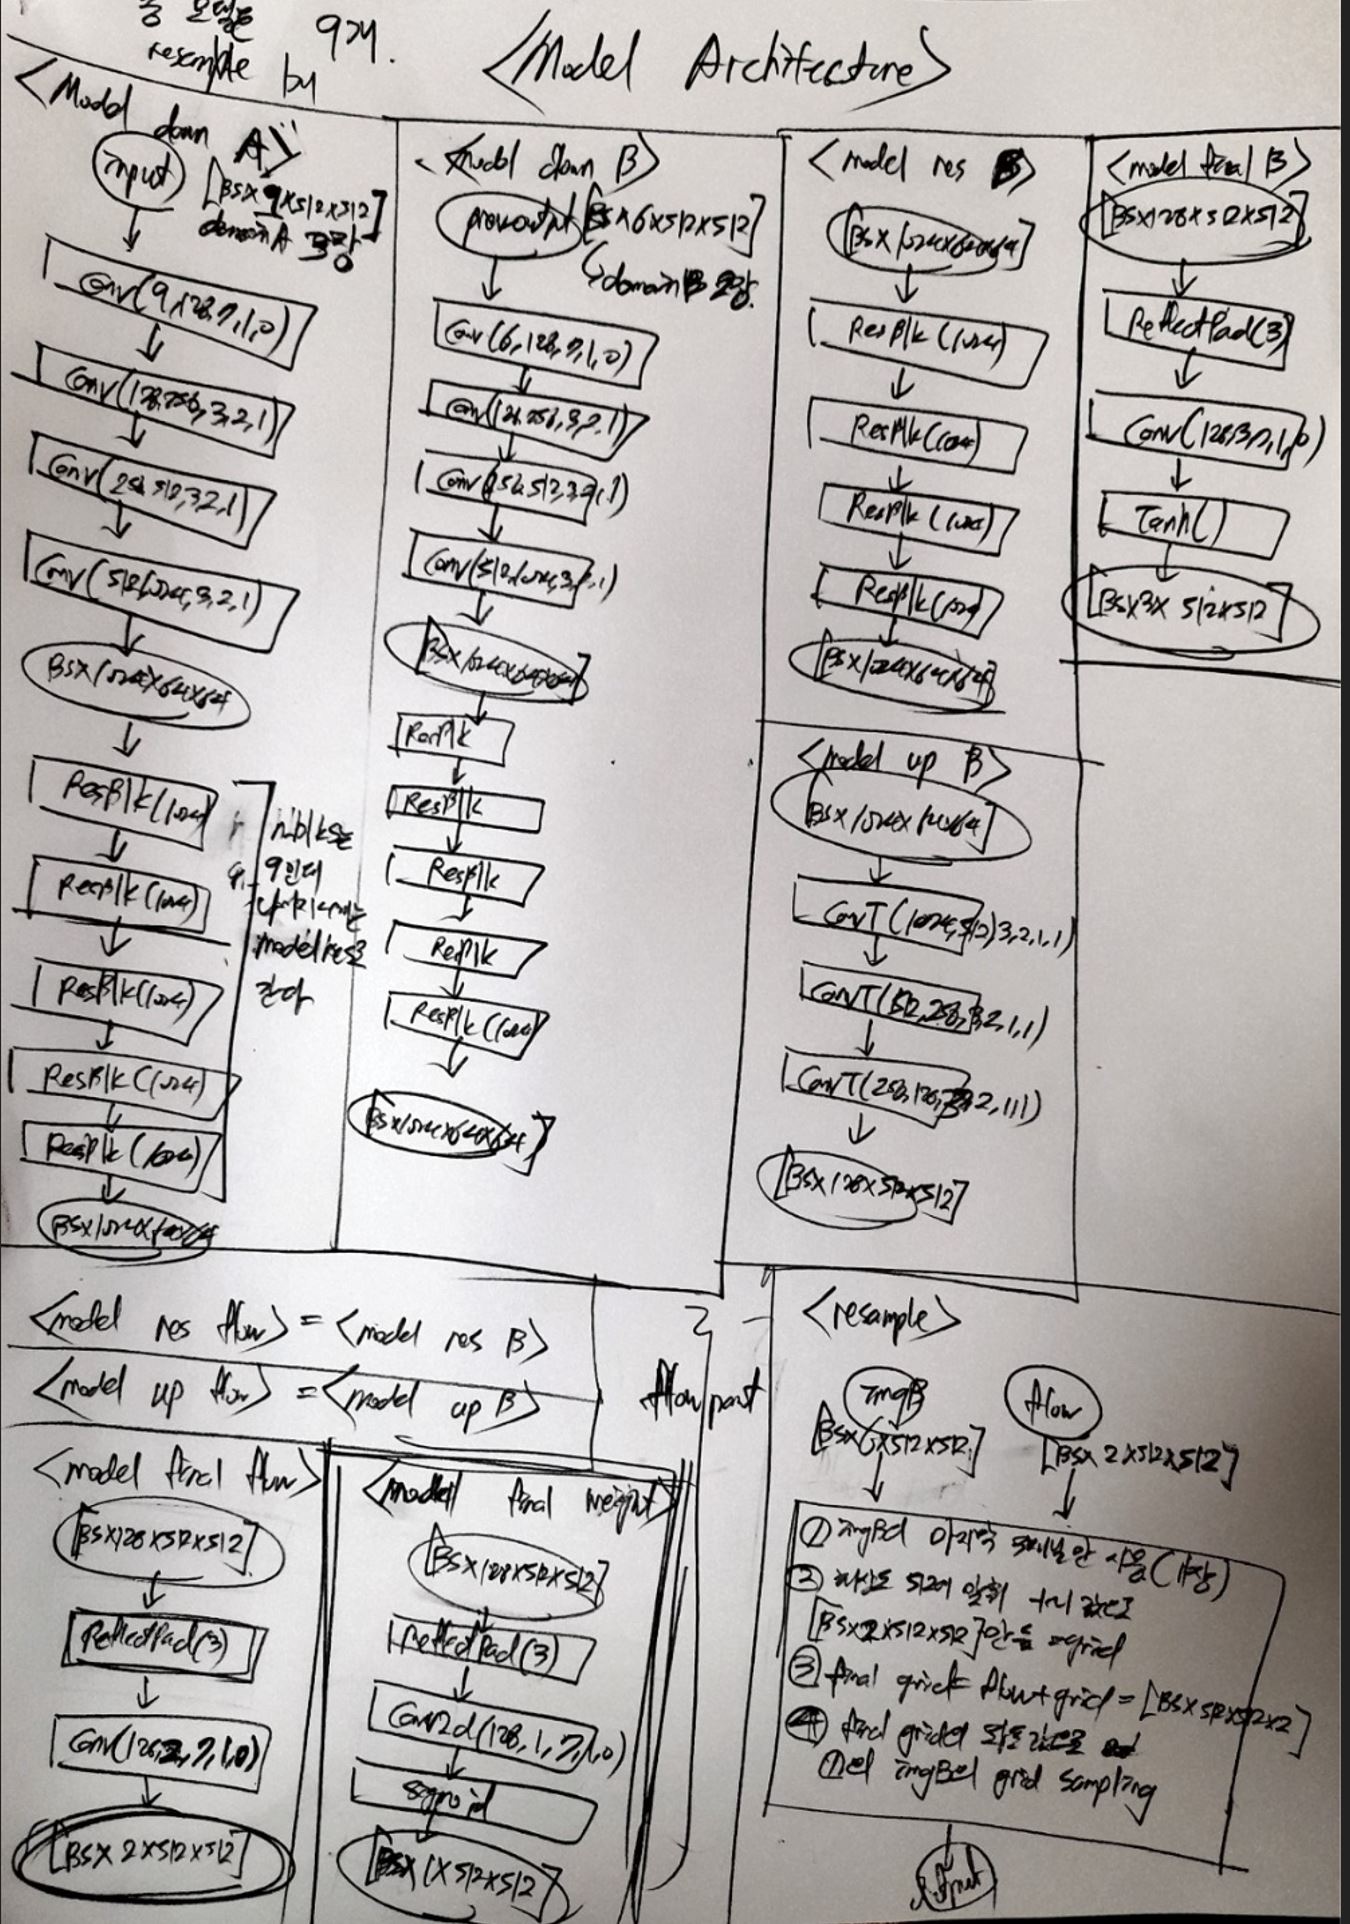 resemple by
9개.
<Model Architecture>
<Model down A>
input
[BSx9x512x512]
domain A 3장
Conv(9,128,7,1,0)
Conv(128,256,3,2,1)
Conv(256,512,3,2,1)
Conv(512,1024,3,2,1)
BSx1024x64x64
ResBlk(1024)
ResBlk(1024)
ResBlk(1024)
ResBlk(1024)
ResBlk(1024)
BSx1024x64x64
9인데
나머지
model res로
간다
<model down B>
prev output [BSx6x512x512]
domain B 2장
Conv(6,128,7,1,0)
Conv(128,256,3,2,1)
Conv(256,512,3,2,1)
Conv(512,1024,3,2,1)
[BSx1024x64x64]
ResBlk
ResBlk
ResBlk
ResBlk
ResBlk(1024)
[BSx1024x64x64]
<model res B>
[BSx1024x64x64]
ResBlk(1024)
ResBlk(1024)
ResBlk(1024)
ResBlk(1024)
[BSx1024x64x64]
<model up B>
[BSx1024x64x64]
ConvT(1024,512,3,2,1,1)
ConvT(512,256,3,2,1,1)
ConvT(256,128,3,2,1,1)
[BSx128x512x512]
<model final B>
[BSx128x512x512]
ReflectPad(3)
Conv(128,3,7,1,0)
Tanh()
[BSx3x512x512]
<model res flow> = <model res B>
<model up flow> = <model up B>
flow part
<model final flow>
[BSx128x512x512]
ReflectPad(3)
Conv(128,2,7,1,0)
[BSx2x512x512]
<model final weight>
[BSx128x512x512]
ReflectPad(3)
Conv2d(128,1,7,1,0)
sigmoid
[BSx1x512x512]
<resample>
imgB
[BSx6x512x512]
flow
[BSx2x512x512]
① imgB의 마지막 3채널만 사용(1장)
② 해상도 512에 맞춰
[BSx2x512x512]만듬 =grid
③ final grid= flow+grid = [BSx512x512x2]
④ final grid의 좌표값으로
①의 imgB의 grid sampling